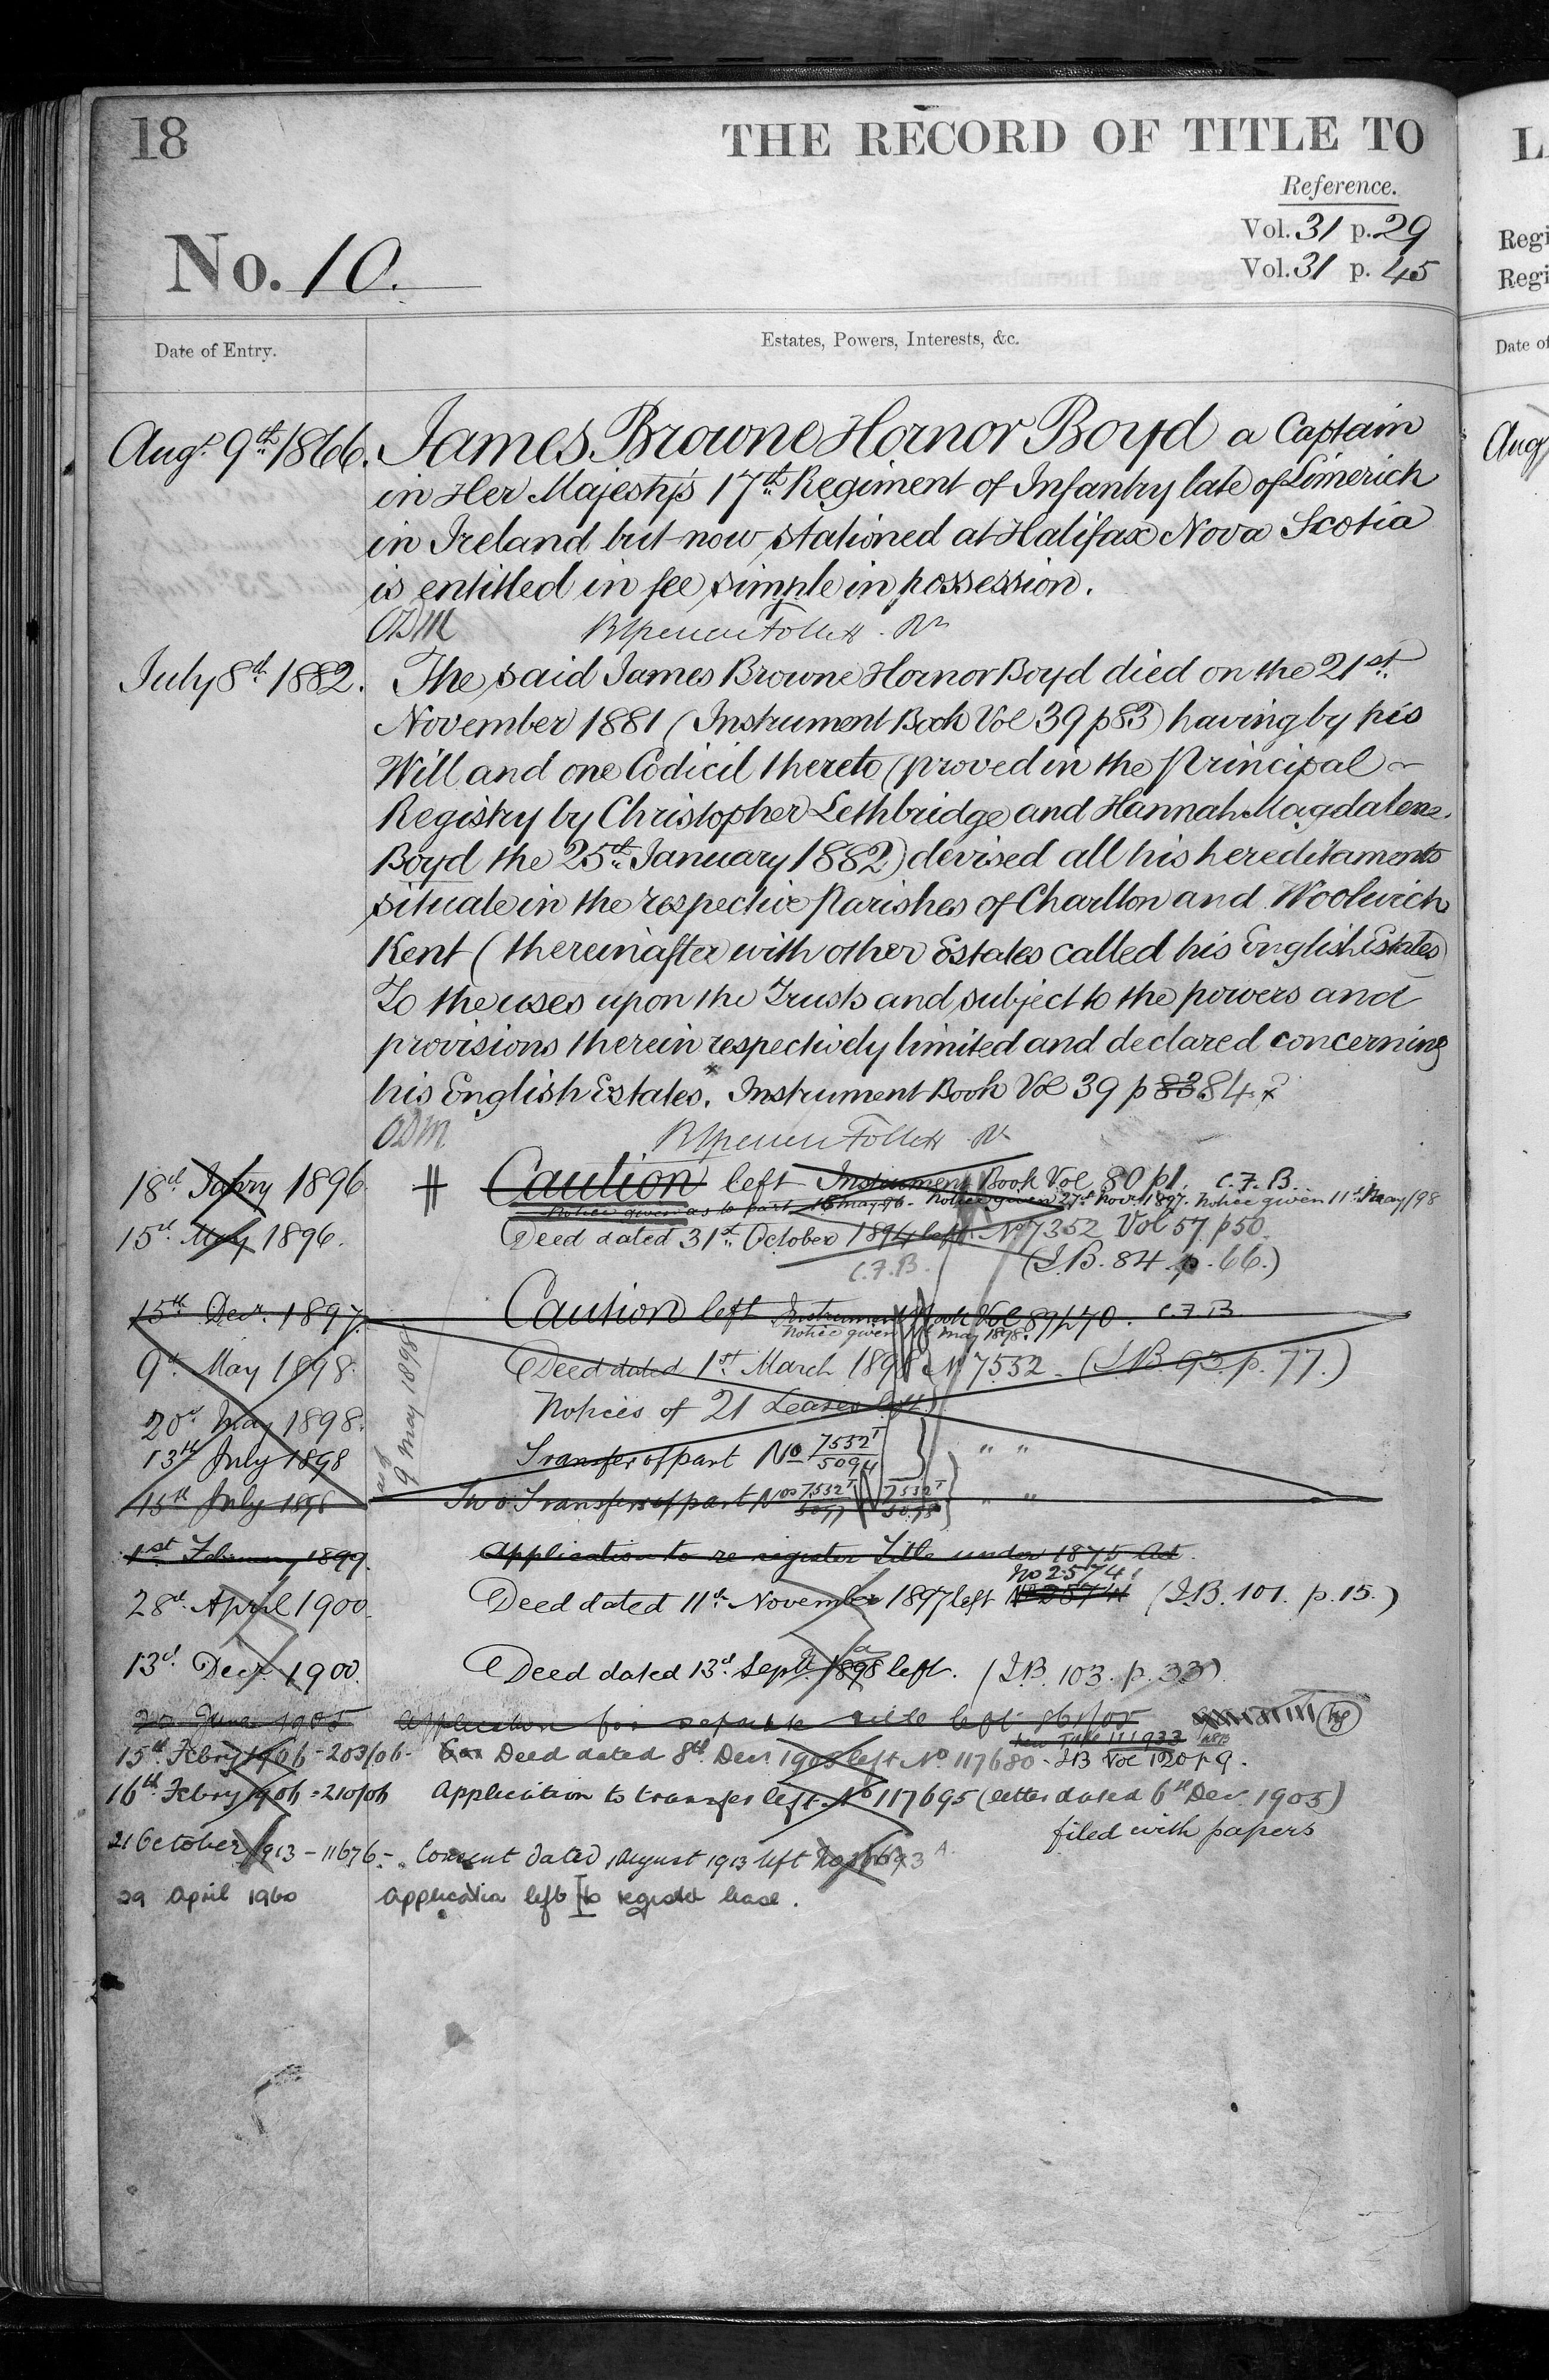 18
THE RECORD OF TITLE TO
Reference.
Vol. 31 p. 29
Vol. 31 p. 45
No. 10.
Date of Entry.
Estates, Powers, Interests, &c.
Augt. 9th 1866. James Browne Hornor Boyd a Captain
in Her Majesty's 17th Regiment of Infantry late of Limerick
in Ireland but now stationed at Halifax Nova Scotia
is entitled in fee simple in possession.
July 8th 1882. The said James Browne Hornor Boyd died on the 21st
November 1881 (Instrument Book Vol 39 p 83) having by his
Will and one Codicil thereto (proved in the Principal
Registry by Christopher Lethbridge and Hannah Magdalene
Boyd the 25th January 1882) devised all his hereditaments
situate in the respective Parishes of Charlton and Woolwich
Kent (thereinafter with other Estates called his English Estates)
To the uses upon the Trusts and subject to the powers and
provisions therein respectively limited and declared concerning
his English Estates. Instrument Book Vol 39 p 83 84
18th Janry 1896 Caution left Instrument Book Vol 80 p 1. C.F.B.
Notice given as to part 16 may 96. Notice given 27th Novr 1897. Notice given 11th May/98
15th May 1896. Deed dated 31st October 1894 left No 7352 Vol 57 p 50.
C.F.B. (I.B. 84. p. 66.)
15th Decr. 1897. Caution left Instrument Book Vol 89 p 70. C.F.B
Notice given May 1898.
9th May 1898. Deed dated 1st March 1898 No 7532 (I.B. 93. p. 77.)
20th May 1898. Notices of 21 Leases left
13th July 1898 Transfer of part No 7532T/5094 " "
as of 9 May 1898
15th July 1898 Two Transfers of part Nos 7532T/5097 7532T/5098 " "
1st February 1899. Application to re-register Title under 1875 Act.
No 2574
28th April 1900. Deed dated 11th November 1897 left No 2574 (I.B. 101. p. 15.)
13th Decr. 1900. Deed dated 13th Septr. 1898 left. (I.B. 103. p. 33)
20 June 1905 Application for separate title left 861/05
New Title 111933
15th Febry 1906 - 203/06 - Deed dated 8th Decr 1905 left No. 117680 - I.B Vol 120 p 9.
16th Febry 1906 = 210/06 Application to transfer left No 117695 (letter dated 6th Decr. 1905)
filed with papers
21 October 1913 - 11676 - Consent dated 1 August 1913 left
29 April 1960 Application left to register lease.
L
Regi
Regi
Date of
Aug